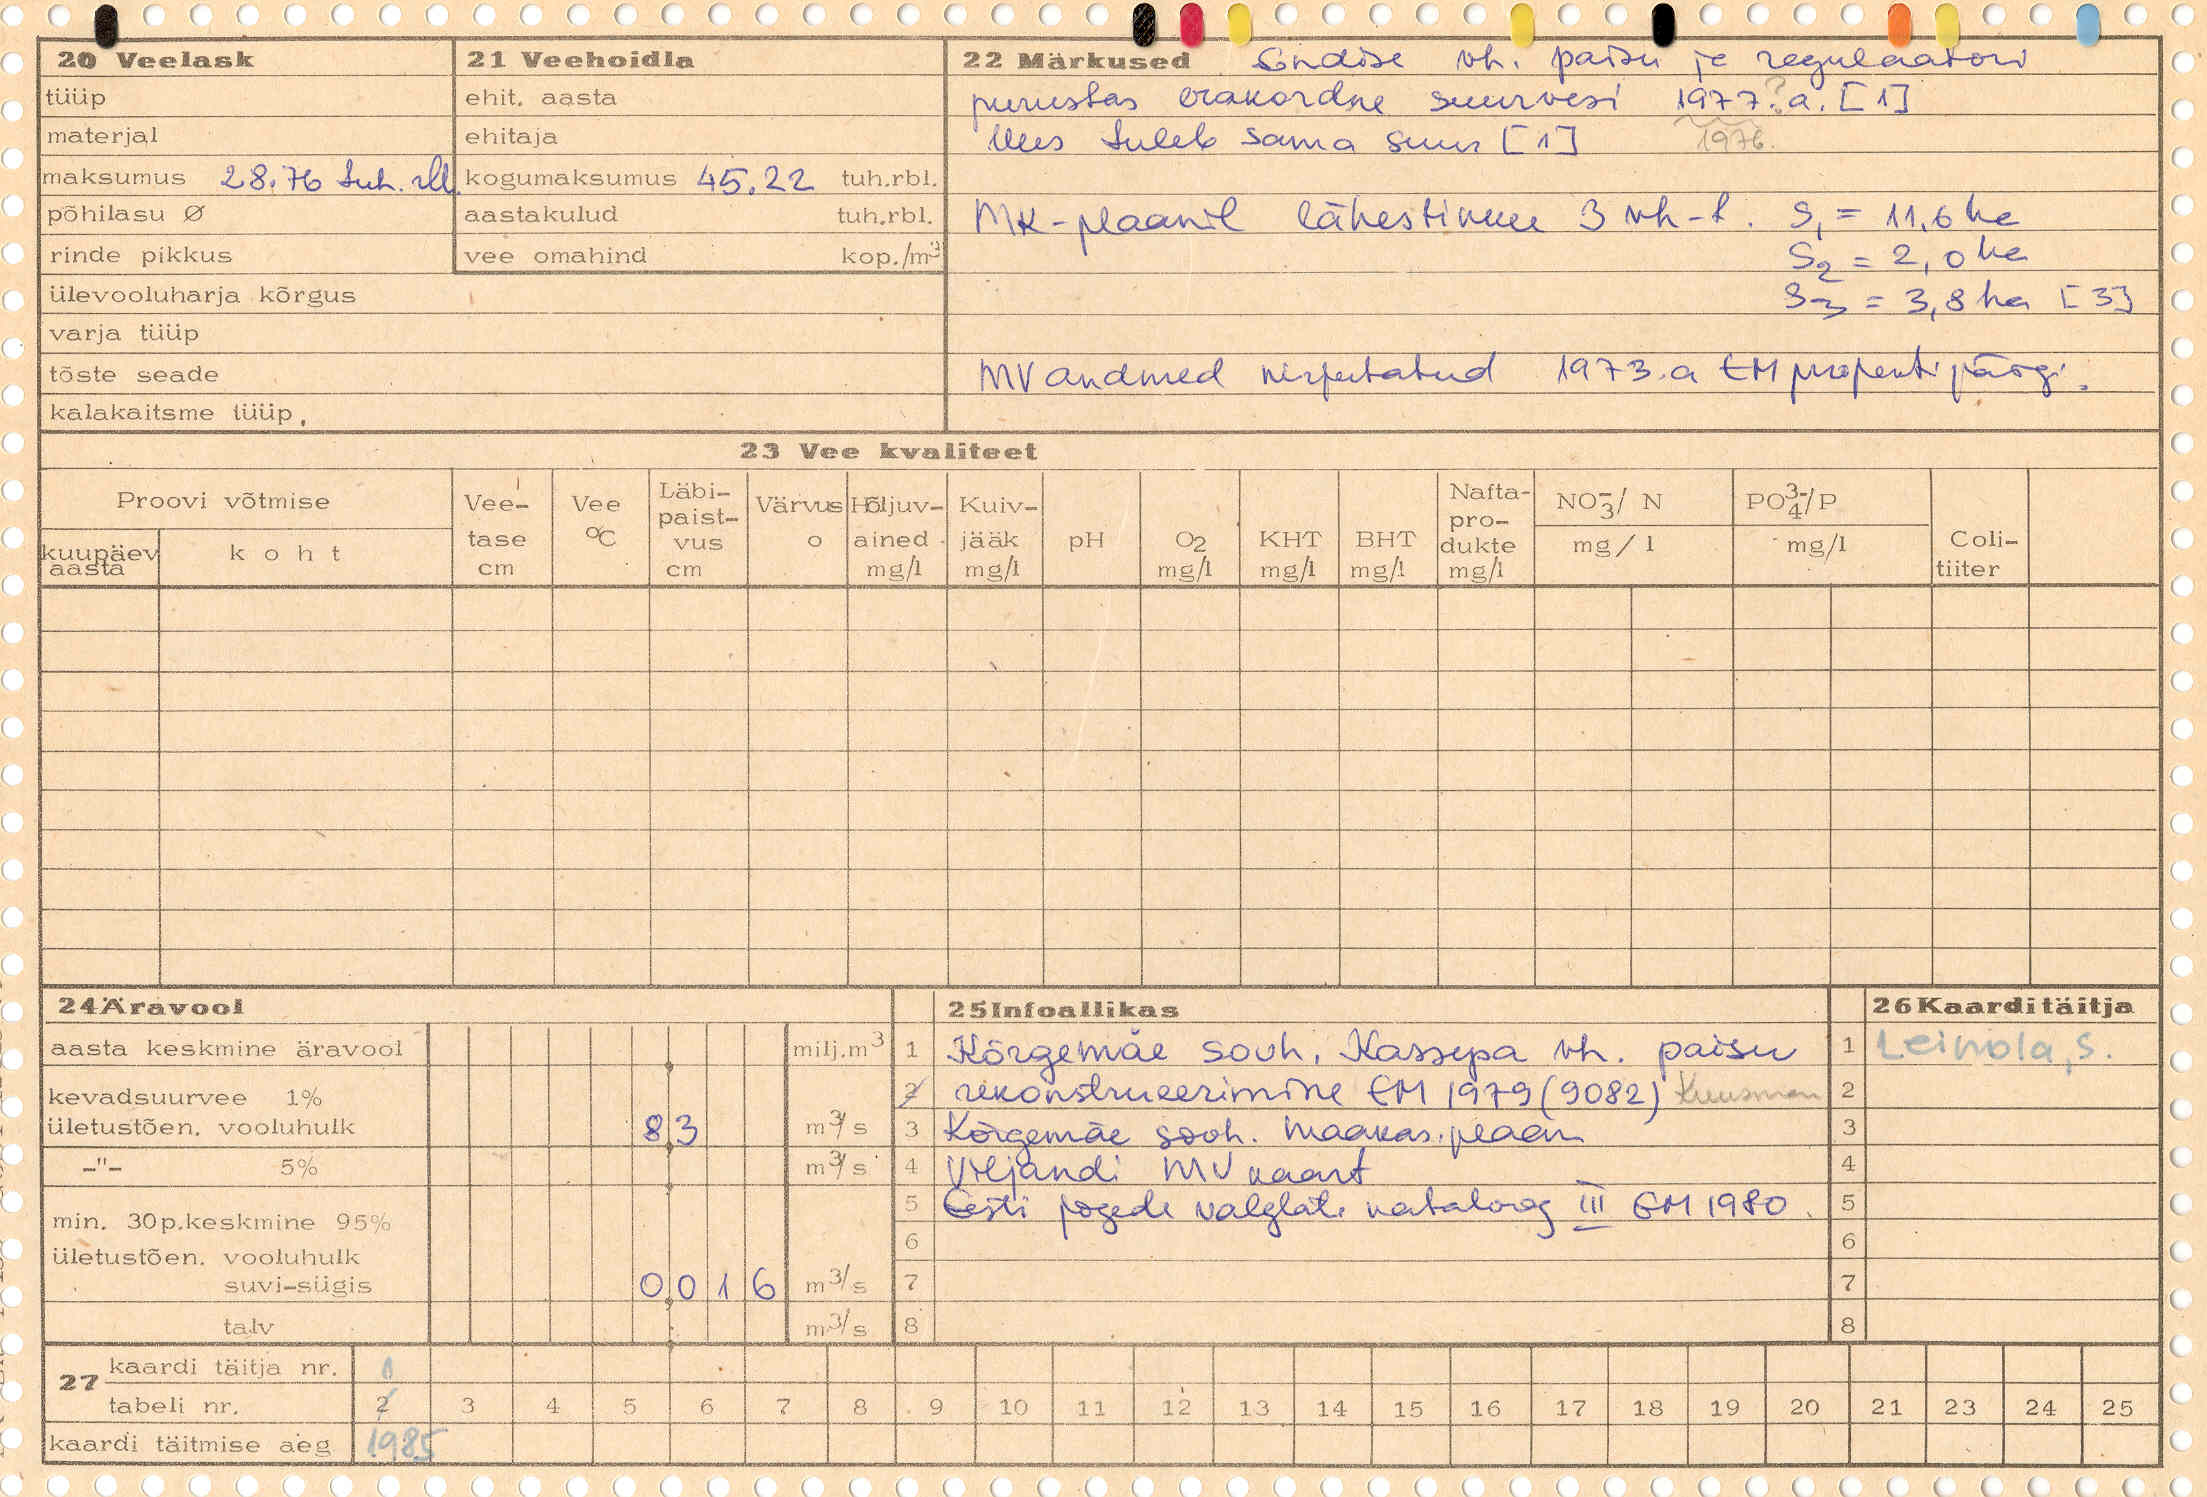 20 Veelask
tüüp
materjal
maksumus 28.76 tuh. rbl.
põhilasu Ø
rinde pikkus
ülevooluharja kõrgus
varja tüüp
tõste seade
kalakaitsme tüüp.
21 Veehoidla
ehit. aasta
ehitaja
kogumaksumus 45.22 tuh.rbl.
aastakulud tuh.rbl.
vee omahind kop./m³
22 Märkused Endise vh. paisu ja regulaatori
purustas erakordne suurvesi 1977.?a. [1]
Uus tuleb sama suur [1] 1976.
MK-plaanil lähestikku 3 vh-t. S₁ = 11,6 ha
S₂ = 2,0 ha
S₃ = 3,8 ha [3]
MV andmed kirjutatud 1973.a EM projekti järgi.
23 Vee kvaliteet
Proovi võtmise
kuupäev aasta
koht
Vee-tase cm
Vee °C
Läbi-paist-vus cm
Värvus o
Hõljuv-ained mg/l
Kuiv-jääk mg/l
pH
O2 mg/l
KHT mg/l
BHT mg/l
Nafta-pro-dukte mg/l
NO₃⁻/ N mg/l
PO₄³⁻/P mg/l
Coli-tiiter
24 Äravool
aasta keskmine äravool milj.m³
kevadsuurvee 1%
ületustõen. vooluhulk 8 3 m³/s
-"- 5% m³/s
min. 30p.keskmine 95%
ületustõen. vooluhulk
suvi-sügis 0 0 1 6 m³/s
talv m³/s
25 Infoallikas
1 Kõrgemäe sovh. Kassepa vh. paisu
2 rekonstrueerimine EM 1979 (9082) Kuusman
3 Kõrgemäe sovh. maakas. plaan
4 Viljandi MV kaart
5 Eesti jõgede valglate kataloog III EM 1980.
6
7
8
26 Kaarditäitja
1 Leinola, S.
2
3
4
5
6
7
8
27 kaardi täitja nr. 1
tabeli nr. 2 3 4 5 6 7 8 9 10 11 12 13 14 15 16 17 18 19 20 21 23 24 25
kaardi täitmise aeg 1985